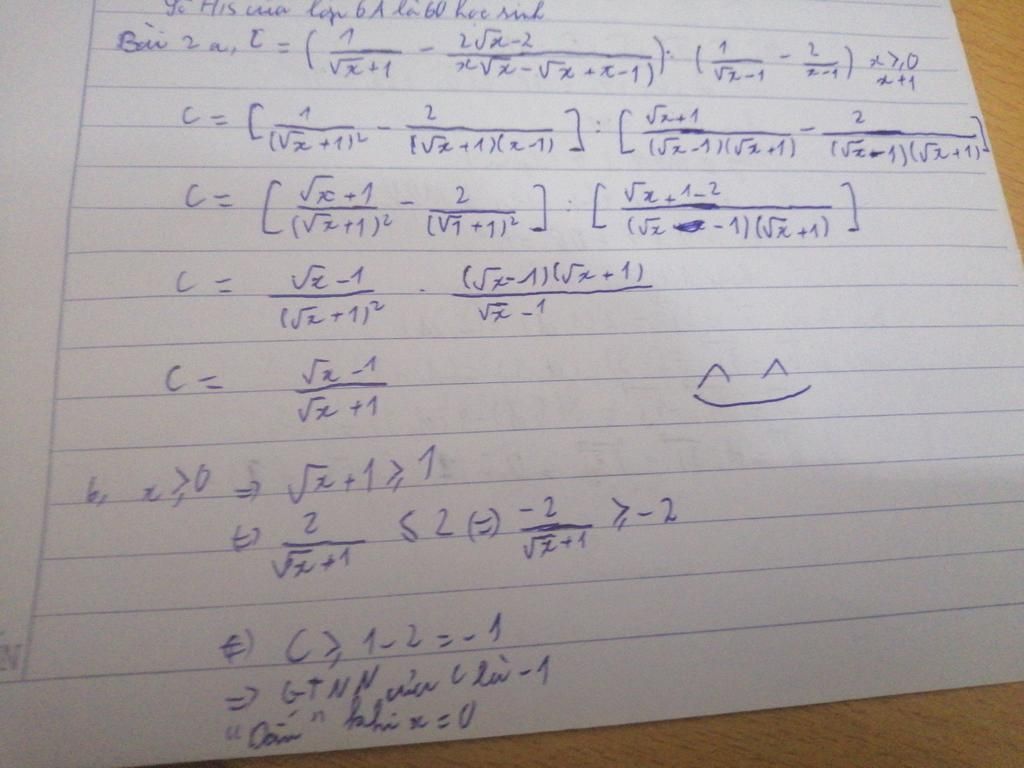 Số H/S của lớp 6A là 60 học sinh
Bài 2 a, C = ( 1/(√x+1) - (2√x-2)/(x√x-√x+x-1) ) : ( 1/(√x-1) - 2/(x-1) ) x≥0 x+1
C = [ 1/(√x+1)² - 2/((√x+1)(x-1)) ] : [ (√x+1)/((√x-1)(√x+1)) - 2/((√x-1)(√x+1)) ]
C = [ (√x+1)/(√x+1)² - 2/(√1+1)² ] : [ (√x+1-2)/((√x-1)(√x+1)) ]
C = (√x-1)/(√x+1)² . ((√x-1)(√x+1))/(√x-1)
C = (√x-1)/(√x+1)
b, x≥0 ⇒ √x+1≥1
⇔ 2/(√x+1) ≤ 2 (=) -2/(√x+1) ≥ -2
⇔ C ≥ 1-2 = -1
⇒ GTNN của C là -1
"Dấu" khi x=0